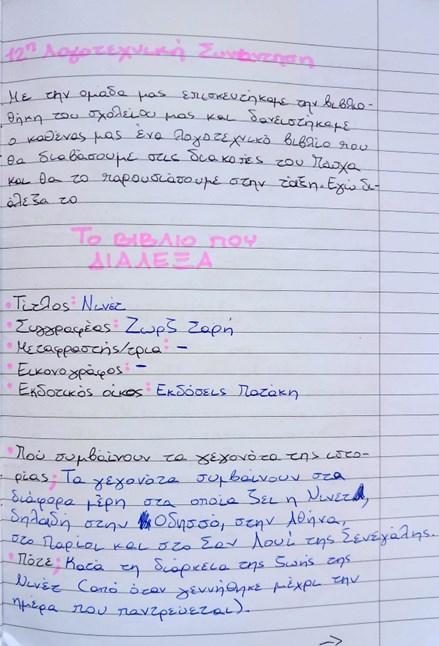 12η Λογοτεχνική Συνάντηση
Με την ομάδα μας επισκευτήκαμε την βιβλιο-
θήκη του σχολείου μας και δανειστήκαμε
ο καθένας μας ένα λογοτεχνικό βιβλίο που
θα διαβάσουμε στις διακοπές του Πάσχα
και θα το παρουσιάσουμε στην τάξη. Εγώ δι-
άλεξα το
ΤΟ ΒΙΒΛΙΟ ΠΟΥ
ΔΙΑΛΕΞΑ
• Τίτλος: Νινέτ
• Συγγραφέας: Ζωρζ Σαρή
• Μεταφραστής/τρια: -
• Εικονογράφος: -
• Εκδοτικός οίκος: Εκδόσεις Πατάκη
• Πού συμβαίνουν τα γεγονότα της ιστο-
ρίας; Τα γεγονότα συμβαίνουν στα
διάφορα μέρη στα οποία ζει η Νινέτ,
δηλαδή στην Οδησσό, στην Αθήνα,
στο Παρίσι και στο Σαν Λουί της Σενεγάλης.
• Πότε; Κατά τη διάρκεια της ζωής της
Νινέτ (από όταν γεννήθηκε μέχρι την
ημέρα που παντρεύεται).
→